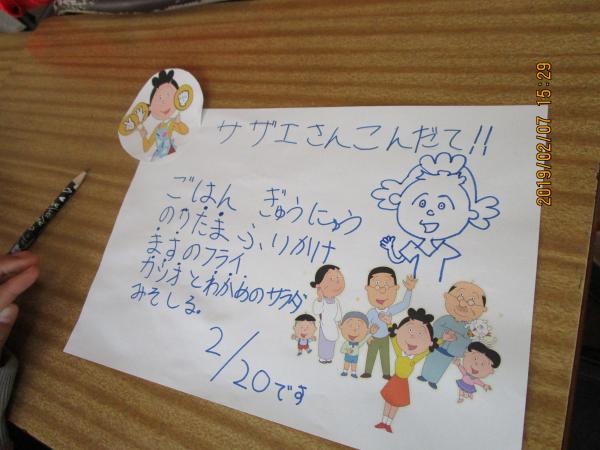 サザエさんこんだて!!
ごはん ぎゅうにゅう
のりたまふりかけ
ますのフライ
カツオとわかめのサラダ
みそしる。
2/20です
2019/02/07 15:29